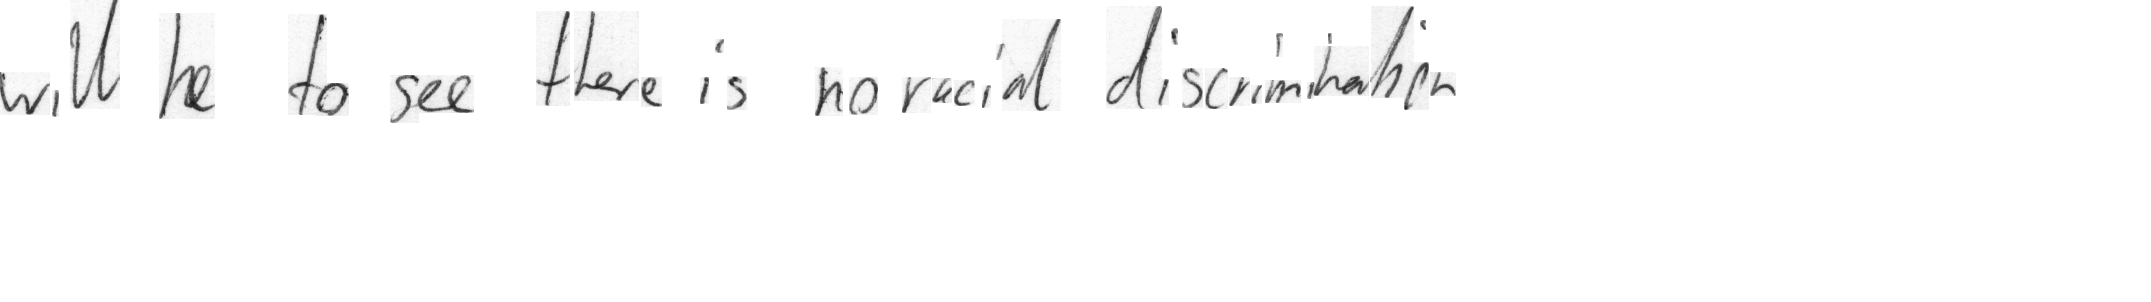 will be to see there is no racial discrimination